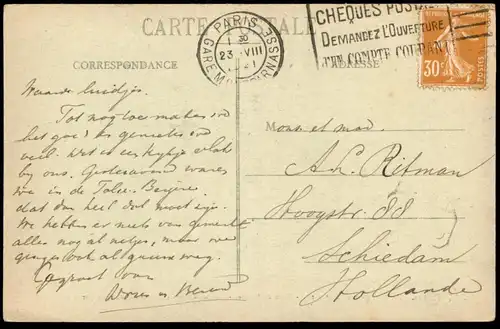 CARTE POSTALE
CORRESPONDANCE
ADRESSE
PARIS
GARE MONTPARNASSE
1 30
23 VIII
CHÈQUES POSTAUX
DEMANDEZ L'OUVERTURE
D'UN COMPTE COURANT
30c
POSTES
Waarde luidjes.
Tot nog toe maken we
het goed en genieten we
veel. Wat is een kijkje
bij ons. Gisteravond waren
we in de Folies Bergère
dat was heel dol mooi zijn.
We hebben er niets van gemerkt
alles nog al netjes, maar we
gingen ook al gauw weg.
Gegroet van
Mons. et mad.
A. L. Ritman
Hoogstr. 88
Schiedam
Hollande